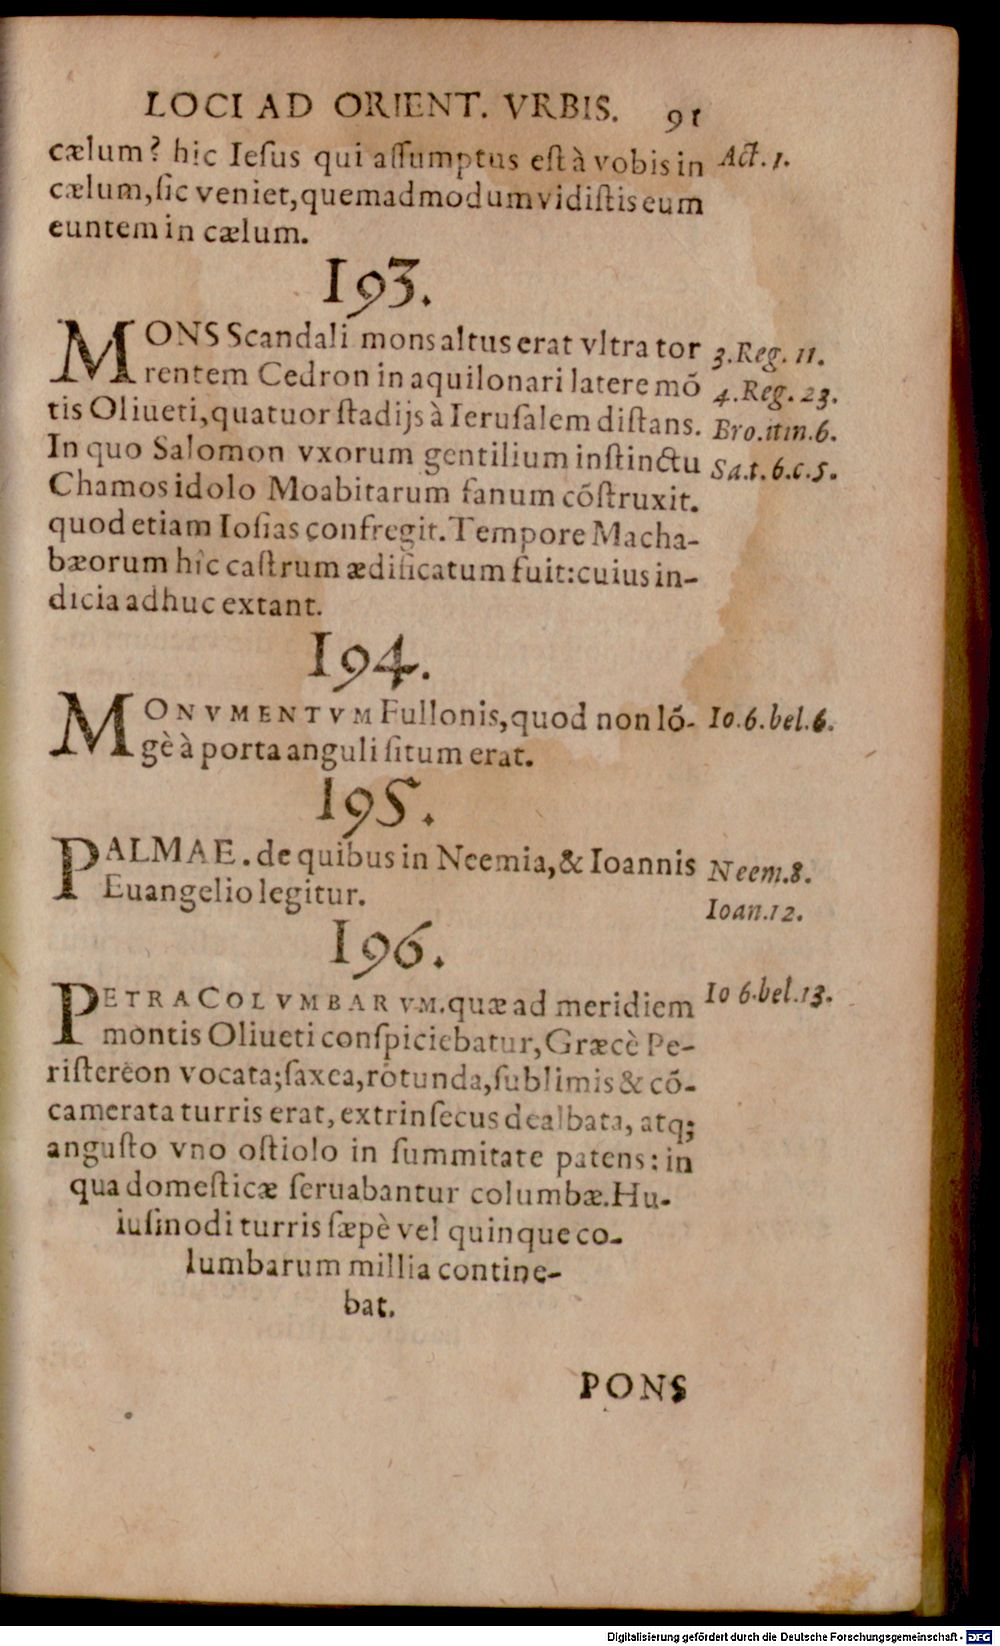 LOCI AD ORIENT. VRBIS. 91
cælum? hic Iesus qui assumptus est à vobis in Act. 1.
cælum, sic veniet, quemadmodum vidistis eum
euntem in cælum.
193.
MONS Scandali mons altus erat vltra tor 3. Reg. 11.
rentem Cedron in aquilonari latere mō 4. Reg. 23.
tis Oliueti, quatuor stadijs à Ierusalem distans. Bro. itin. 6.
In quo Salomon vxorum gentilium instinctu Sa. t. 6. c. 5.
Chamos idolo Moabitarum fanum cōstruxit.
quod etiam Iosias confregit. Tempore Macha-
bæorum hîc castrum ædificatum fuit: cuius in-
dicia adhuc extant.
194.
MONVMENTVM Fullonis, quod non lō- Io. 6. bel. 6.
gè à porta anguli situm erat.
195.
PALMAE. de quibus in Neemia, & Ioannis Neem. 8.
Euangelio legitur. Ioan. 12.
196.
PETRA COLVMBARVM. quæ ad meridiem Io 6. bel. 13.
montis Oliueti conspiciebatur, Græcè Pe-
ristereon vocata; saxea, rotunda, sublimis & cō-
camerata turris erat, extrinsecus dealbata, atq;
angusto vno ostiolo in summitate patens: in
qua domesticæ seruabantur columbæ. Hu-
iusmodi turris sæpè vel quinque co-
lumbarum millia contine-
bat.
PONS
Digitalisierung gefördert durch die Deutsche Forschungsgemeinschaft - DFG